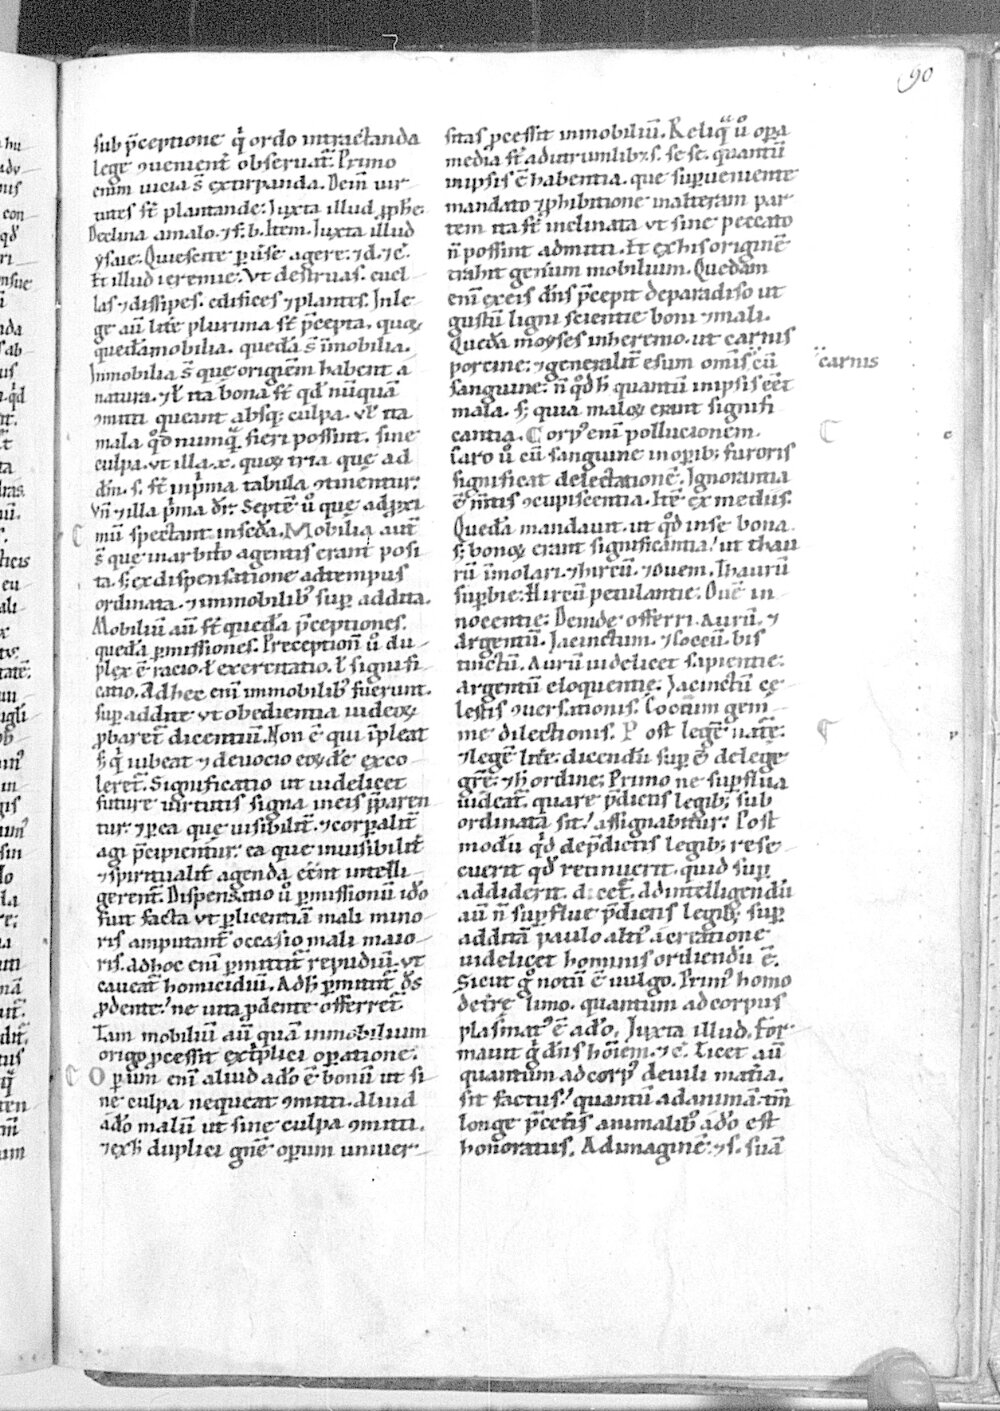 90
sub p̄ceptione qͥ ordo intractanda
lege ꝯuenient᷑ obseruat᷑. Primo
enim uicia s̄ extirpanda. Dein̄ uir-
tutes st̄ plantande: Juxta illud ꝓphe.
Declina amalo. ⁊ f. b. Item. Juxta illud
ysaie: Quiescite ꝑuse agere: ⁊ d. ⁊ c̄.
Et illud ieremie: Vt destruas. euel-
las ⁊ dissipes. edifices ⁊ plantes. Jn le-
ge aū litt̄e plurima st̄ p̄cepta. quoꝝ
quedā mobilia. quedā s̄ īmobilia.
Jnmobilia s̄ que originem habent a
natura. ⁊ ł ita bona st̄ qd̄ nūquā
ꝯmitti queant absqꝫ culpa. vł ita
mala qd̄ numqᷓ fieri possint. sine
culpa. vt illa .x. quoꝝ tria que ad
dm̄. s. st̄ inp̍ma tabula ꝯtinentur:
Vn̄ ⁊ illa p̍ma dr̄. Septē ů que ad ꝓxi
mū spectant. in sed̄a. Mobilia aut̄
s̄ que in arbitͦo agentis erant posi
ta. sꝫ ex dispensatione ad tempus
ordinata. ⁊ immobilibꝰ suꝑ addita.
Mobiliū aū st̄ quedā p̄ceptiones.
quedā ꝑmissiones. Preceptionū ů du-
plex ē racio. ł exercitatio. ł signifi
catio. Ad hec enī immobilibꝰ fuerunt.
suꝑ addite vt obedientia iudeoꝝ
ꝓbaret᷑ dicentiū. Non ē qui īpleat
sꝫ qͥ iubeat ⁊ deuocio eoꝝ dē exco
leret᷑. Significatio ut uidelicet
future uirtutis signa in eis p̄paren
tur. ⁊ ꝑ ea que uisibilit᷑. ⁊ corꝑalit᷑
agi p̄cipientur: ea que inuisibilit᷑
⁊ spiritualit᷑ agenda eēnt intelli
gerent᷑. Dispensatio ů ꝑmissionū id̊o
fuit facta vt ꝑ licentiā mali mino
ris amputaret᷑ occasio mali maio
ris. ad hoc enī ꝑmittit᷑ repudiū. vt
caueat᷑ homicidiū. Ad h̄ ꝑmittit᷑ d̄s
ꝓdente! ne uita ꝓdente offerret᷑.
Tam mobiliū aū quā inmobilium
origo ꝓcessit ex t̍plici oꝑatione.
Oꝑum enī aliud ad̊o ē bonū ut si
ne culpa nequeat ꝯmitti. Aliud
ad̊o malū ut sine culpa ꝯmitti.
⁊ ex h̄ duplici gn̄e oꝑum uniuer-
sitas ꝓcessit inmobiliū. Reliqᷓ ů oꝑa
media st̄ ad utrumlibꝫ. s. se se. quantū
in ipsis ē habentia. que suꝑueniente
mandato ⁊ ꝓhibitione in alteram par
tem ita st̄ inclinata vt sine peccato
n̄ possint admitti. Et ex his originē
trahit genium mobilium. Quedam
enī ex eis dn̄s p̄cepit de paradiso ut
gustū ligni scientie boni ⁊ mali.
Quedā moyses in heremo. ut carnis
porcine: ⁊ generalit᷑ esum omīs cū
carnis
sanguine: n̄ qd̊ h̄ quantū in ipsis eēt
mala. sꝫ quia maloꝝ erant signifi
cantia. Corpꝰ enī pollucionem.
Caro ů cū sanguine in oꝑibꝫ furoris
significat delectationē. Ignorantia
ē m̄tis ⁊ cupiscentia. Itē ex mediis.
Quedā mandauit. ut qd̊ in se bona.
sꝫ bonoꝝ erant significantia! ut thau
rū īmolari. ⁊ hircū. ⁊ ouem. Thaurū
suꝑbie: Hircū petulantie: Ouē in
nocentie: Deinde offerri. Aurū. ⁊
Argentū. Jacinctum. ⁊ coccū. bis
tinctū. Aurū uidelicet sapientie:
argentū eloquentie: Jacinctū ce
lestis ꝯuersationis. Coccum gemi
ne dilectionis. Post legē nat̄e:
⁊ legē litt̄e. dicendū suꝑ ē de lege
gr̄e: ⁊ h̄ ordine: Primo ne suꝑflua
uideat᷑. quare p̄dictis legibꝫ sub
ordinata sit! assignabitur: Post
modū qd̄ de p̄dictis legibꝫ rese
cuerit qd̄ retinuerit. quid suꝑ
addiderit. dicet᷑. Ad intelligendū
aū n̄ suꝑflue p̄dictis legibꝫ suꝑ
additā paulo altiꝰ a creatione
uidelicet hominis ordiendū ē.
Sicut gͦ notū ē uulgo. Primꝰ homo
de t̄re limo. quantum ad corpus
plasmatꝰ ē ad̊o. Juxta illud. For-
mauit gͥ dn̄s hōīem. ⁊ c̄. Licet aū
quantum ad corpꝰ de uili mat̄ia.
sit factus! quantū ad animā. tm̄
longe p̄ cet̄is animalibꝰ ad̊o est
honoratus. Ad imaginē: ⁊ s. suā